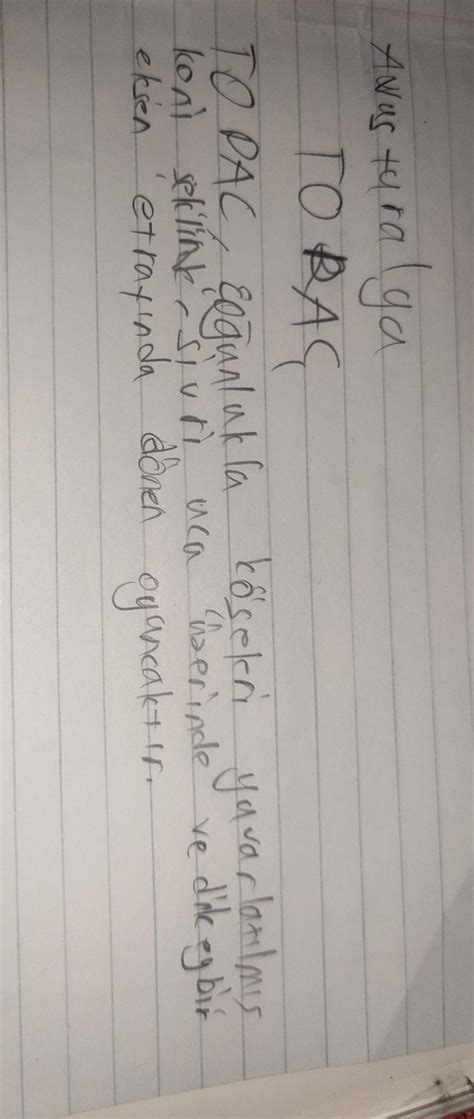 Avusturalya
TOPAÇ
TOPAÇ, Çoğunlukla köşeleri yuvarlanılmış
koni şeklinde, sivri uca üzerinde ve dikeybir
eksen etrafında dönen oyuncaktır.